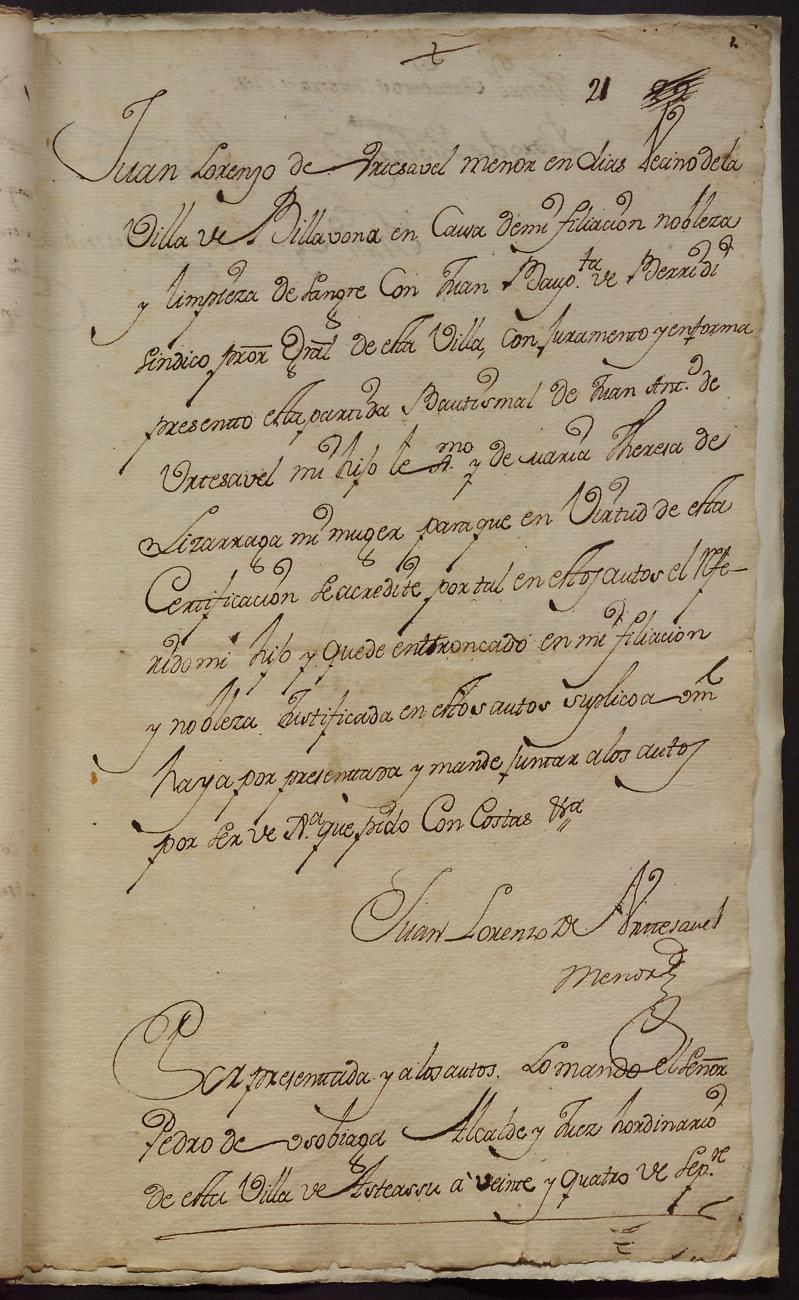 21
Juan Lorenzo de Vrtesavel menor en dias Vecino de la
Villa de Billavona en Causa demi filiacion nobleza
y limpieza de sangre Con Juan Bap.ta de Berridi
sindico pror Gral de esta Villa, con Juramento y enforma
presento esta partida Bautismal de Juan Ant.o de
Vrtesavel mi hijo le mo y de maria Theresa de
Lizarraga mi muger para que en Virtud de esta
Certificacion se acredite por tal en estos autos el Refe-
rido mi hijo y quede enttroncado en mi filiacion
y nobleza Justificada en estos autos suplico a vm
haya por presentada y mande juntar a los autos
por ser de Ju.a que pido Con Costas &a
Juan Lorenzo de Vrttesavel
menor
Por presentada y a los autos. Lo mando el señor
Pedro de Osobiaga Alcalde y Juez hordinario
de esta Villa de Asteassu a veinte y quatro de Sep.re